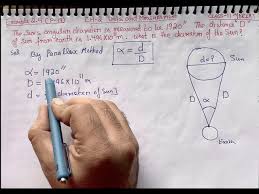 Example 2.4 CH-2 Units and Measurements Class-11
The Sun's angular diameter is measured to be 1920". The distance D
of Sun from Earth is 1.496×10¹¹ m. What is the diameter of the Sun?
Sol By Parallax Method
α = d/D
α = 1920"
D = 1.496×10¹¹ m
d = diameter of Sun
d=?
Sun
D
D
α
Earth